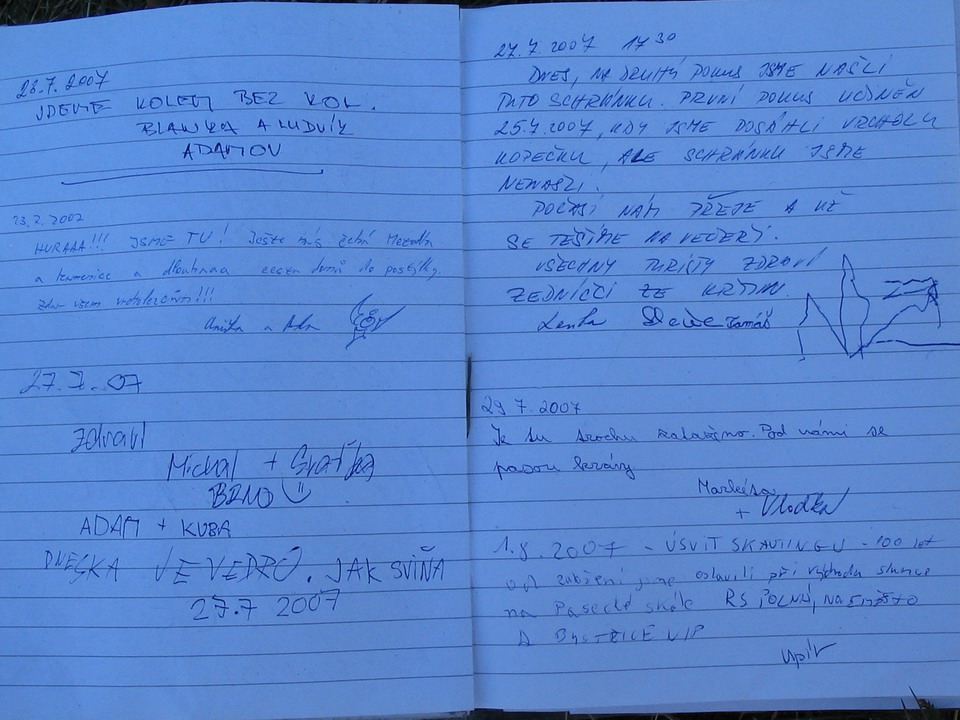 28.7.2007
JDEME KOLEM BEZ KOL.
BLANKA A LUDVÍK
ADAMOV
23.7.2007
HURAAA!!! JSME TU! Ještě nás čeká
a a do postýlky.
všem !!!
a
27.7.07
Zdraví
Michal +
BRNO
ADAM + KUBA
DNESKA JE VEDRO. JAK SVIŇA
27.7 2007
27.7.2007 17 30
DNES, NA DRUHÝ POKUS JSME NAŠLI
TUTO SCHRÁNKU. PRVNÍ POKUS UČINĚN
25.7.2007, KDY JSME DOSÁHLI VRCHOLU
KOPEČKU, ALE SCHRÁNKU JSME
NENAŠLI.
POČASÍ NÁM PŘEJE A UŽ
SE TĚŠÍME NA VEČEŘI.
VŠECHNY TURISTY ZDRAVÍ
ZEDNÍČCI ZE KŘTIN
Lenka Tomáš
29.7.2007
Je tu trochu zataženo. Pod námi se
pasou krávy
Markéta
+ Vlaďka
1.8.2007 - ÚSVIT SKAUTINGU - 100 let
od založení jsme oslavili při východu slunce
na Pasecké skále RS POLNÁ, NA
A BYSTŘICE
Upír